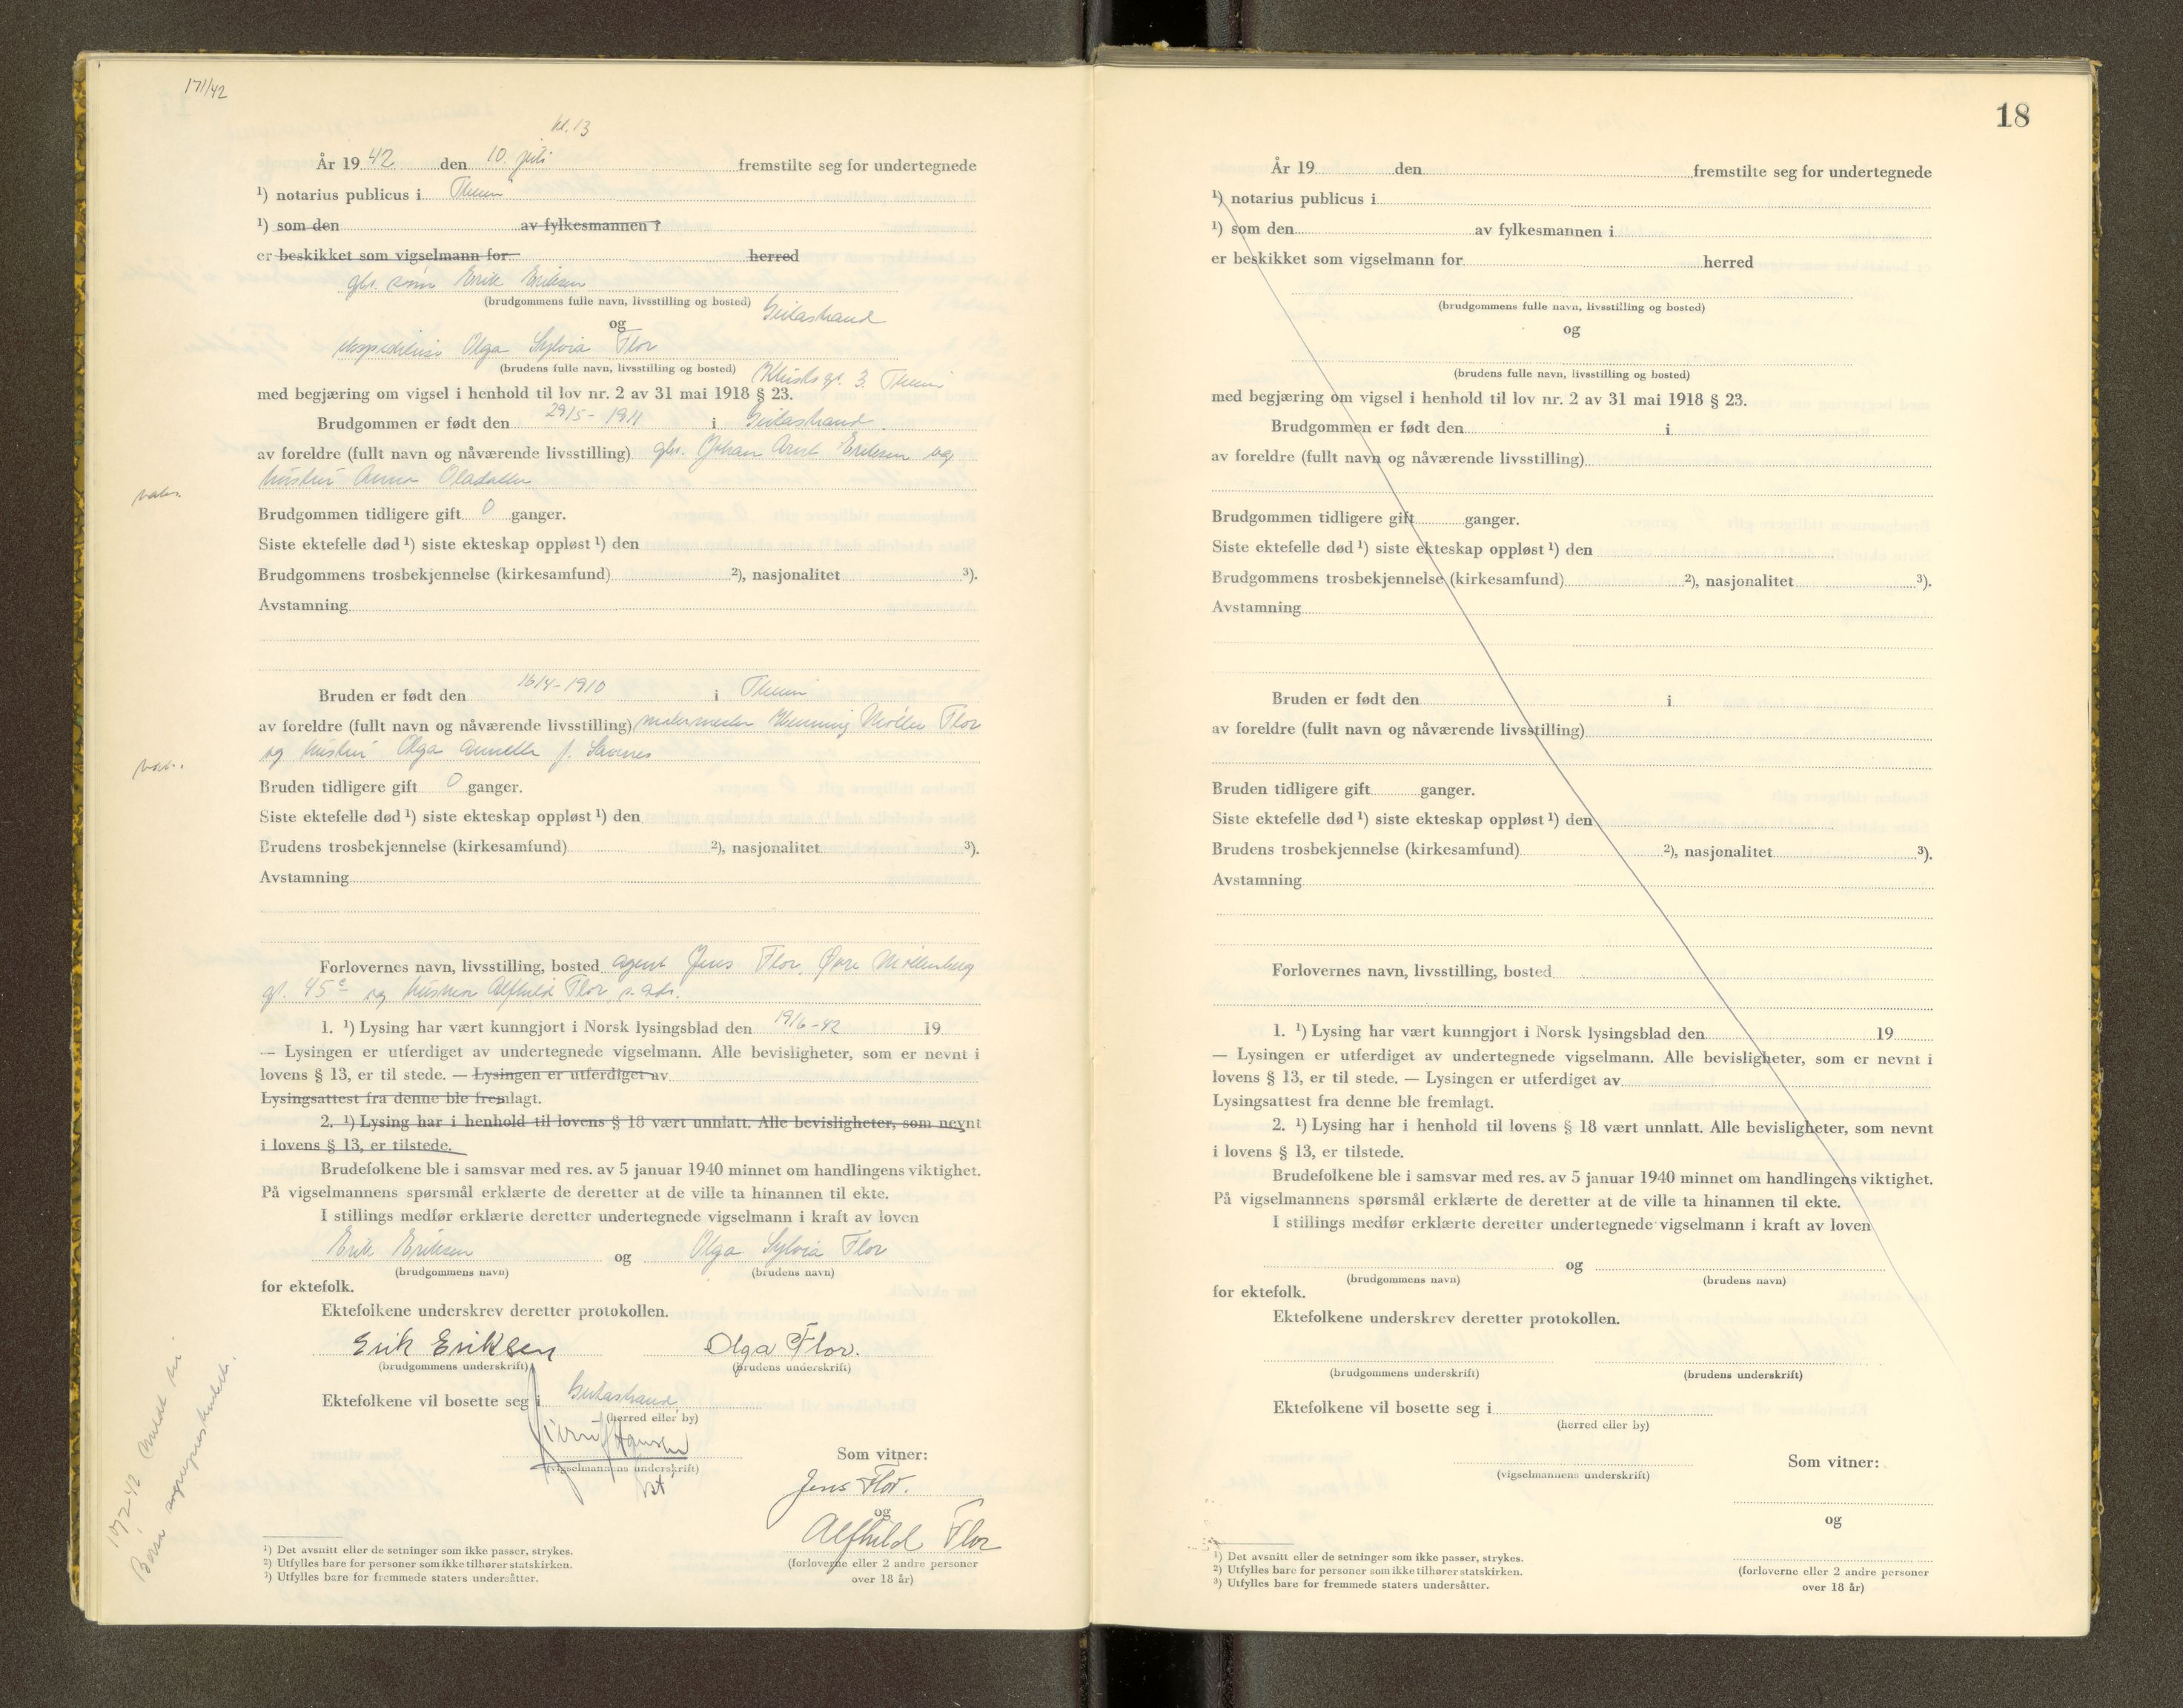 171/42
kl. 13
År 19 42 den 10. juli fremstilte seg for undertegnede
¹) notarius publicus i Thum
¹) som den av fylkesmannen i
er beskikket som vigselmann for herred
gbr. sønn Erik Eriksen
(brudgommens fulle navn, livsstilling og bosted) Geitastrand
og
Olga Sylvia Flor
(brudens fulle navn, livsstilling og bosted) gt. 3. Thum
med begjæring om vigsel i henhold til lov nr. 2 av 31 mai 1918 § 23.
Brudgommen er født den 29/5 - 1911 i Geitastrand.
av foreldre (fullt navn og nåværende livsstilling) gbr. Johan Arnt Eriksen og
hustru Anna
Brudgommen tidligere gift 0 ganger.
Siste ektefelle død ¹) siste ekteskap oppløst ¹) den
Brudgommens trosbekjennelse (kirkesamfund) ²), nasjonalitet ³).
Avstamning
Bruden er født den 16/4 - 1910 i Thum
av foreldre (fullt navn og nåværende livsstilling) malermester Henning Møller Flor
og hustru Olga f.
Bruden tidligere gift 0 ganger.
Siste ektefelle død ¹) siste ekteskap oppløst ¹) den
Brudens trosbekjennelse (kirkesamfund) ²), nasjonalitet ³).
Avstamning
Forlovernes navn, livsstilling, bosted agent Jens Flor, Øvre Møllenberg
gt. 45 og hustru Alfhild Flor s. adr.
1. ¹) Lysing har vært kunngjort i Norsk lysingsblad den 19/6-42 19
— Lysingen er utferdiget av undertegnede vigselmann. Alle bevisligheter, som er nevnt i
lovens § 13, er til stede. — Lysingen er utferdiget av
Lysingsattest fra denne ble fremlagt.
2. ¹) Lysing har i henhold til lovens § 18 vært unnlatt. Alle bevisligheter, som nevnt
i lovens § 13, er tilstede.
Brudefolkene ble i samsvar med res. av 5 januar 1940 minnet om handlingens viktighet.
På vigselmannens spørsmål erklærte de deretter at de ville ta hinannen til ekte.
I stillings medfør erklærte deretter undertegnede vigselmann i kraft av loven
Erik Eriksen og Olga Sylvia Flor
(brudgommens navn) (brudens navn)
for ektefolk.
Ektefolkene underskrev deretter protokollen.
Erik Eriksen Olga Flor.
(brudgommens underskrift) (brudens underskrift)
Ektefolkene vil bosette seg i Geitastrand
(herred eller by)
Hansen
(vigselmannens underskrift)
Som vitner:
Jens Flor.
og
Alfhild Flor
(forloverne eller 2 andre personer
over 18 år)
10/7-42 meldt til
¹) Det avsnitt eller de setninger som ikke passer, strykes.
²) Utfylles bare for personer som ikke tilhører statskirken.
³) Utfylles bare for fremmede staters undersåtter.
18
År 19 den fremstilte seg for undertegnede
¹) notarius publicus i
¹) som den av fylkesmannen i
er beskikket som vigselmann for herred
(brudgommens fulle navn, livsstilling og bosted)
og
(brudens fulle navn, livsstilling og bosted)
med begjæring om vigsel i henhold til lov nr. 2 av 31 mai 1918 § 23.
Brudgommen er født den i
av foreldre (fullt navn og nåværende livsstilling)
Brudgommen tidligere gift ganger.
Siste ektefelle død ¹) siste ekteskap oppløst ¹) den
Brudgommens trosbekjennelse (kirkesamfund) ²), nasjonalitet ³).
Avstamning
Bruden er født den i
av foreldre (fullt navn og nåværende livsstilling)
Bruden tidligere gift ganger.
Siste ektefelle død ¹) siste ekteskap oppløst ¹) den
Brudens trosbekjennelse (kirkesamfund) ²), nasjonalitet ³).
Avstamning
Forlovernes navn, livsstilling, bosted
1. ¹) Lysing har vært kunngjort i Norsk lysingsblad den 19
— Lysingen er utferdiget av undertegnede vigselmann. Alle bevisligheter, som er nevnt i
lovens § 13, er til stede. — Lysingen er utferdiget av
Lysingsattest fra denne ble fremlagt.
2. ¹) Lysing har i henhold til lovens § 18 vært unnlatt. Alle bevisligheter, som nevnt
i lovens § 13, er tilstede.
Brudefolkene ble i samsvar med res. av 5 januar 1940 minnet om handlingens viktighet.
På vigselmannens spørsmål erklærte de deretter at de ville ta hinannen til ekte.
I stillings medfør erklærte deretter undertegnede vigselmann i kraft av loven
og
(brudgommens navn) (brudens navn)
for ektefolk.
Ektefolkene underskrev deretter protokollen.
(brudgommens underskrift) (brudens underskrift)
Ektefolkene vil bosette seg i
(herred eller by)
Som vitner:
(vigselmannens underskrift)
og
(forloverne eller 2 andre personer
over 18 år)
¹) Det avsnitt eller de setninger som ikke passer, strykes.
²) Utfylles bare for personer som ikke tilhører statskirken.
³) Utfylles bare for fremmede staters undersåtter.